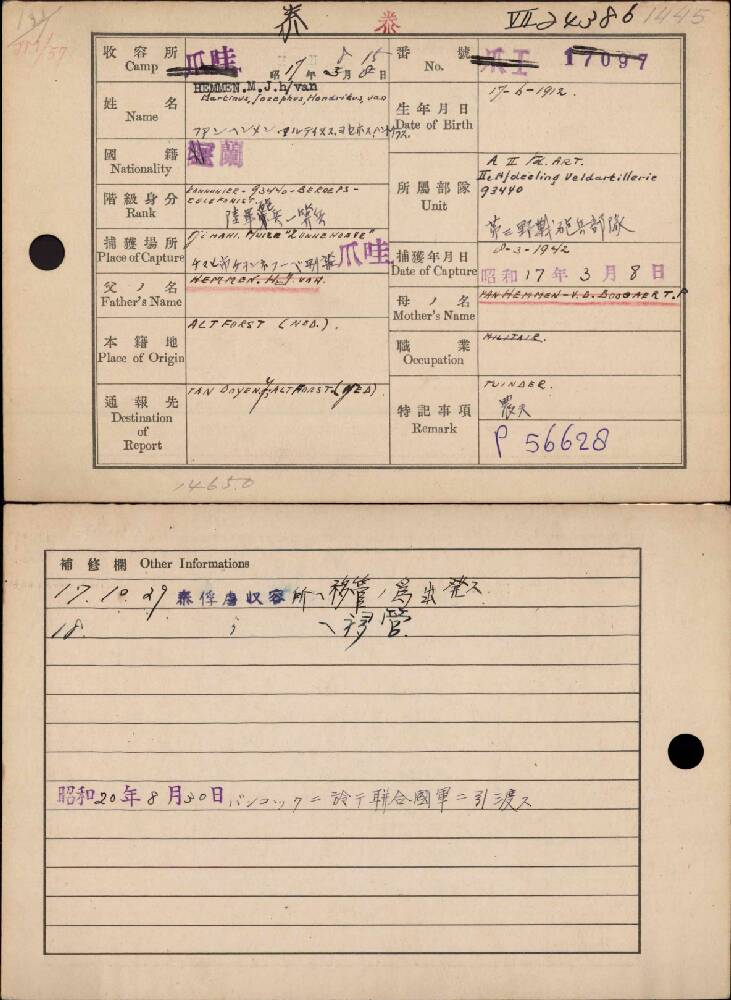 泰 泰 VII 24386 1445
收容所 Camp 爪哇 昭17年 8月15日
番號 No. 爪I 17097
姓名 Name HEMMEN.M.J.h/van
Martinus, Josephus, Hendrikus, van
ファン ヘンメン マルティヌス ヨセホス
生年月日 Date of Birth 17-6-1912.
國籍 Nationality 蘭
階級身分 Rank KANONNIER-93440-BEROEPS-
陸軍砲兵一等兵
所屬部隊 Unit A II Fd. ART.
IIe Afdeeling Veldartillerie
93440
第二野戰砲兵部隊
捕獲場所 Place of Capture TJIMAHI. HUIZE "ZONNEHOEVE"
爪哇
捕獲年月日 Date of Capture 8-3-1942
昭和17年3月8日
父ノ名 Father's Name HEMMEN. H.J. VAN.
母ノ名 Mother's Name VAN HEMMEN-V.D. BOOGAERT. P
本籍地 Place of Origin ALTFORST (NED.).
職業 Occupation MILITAIR.
通報先 Destination of Report ALTFORST (NED)
特記事項 Remark TUINDER.
農夫
P 56628
14650
補修欄 Other Informations
17.10.29 泰俘虜収容所ヘ移管ノ為出発ス
18. 〃 ヘ移管
昭和20年8月30日 バンコックニ於テ聯合國軍ニ引渡ス